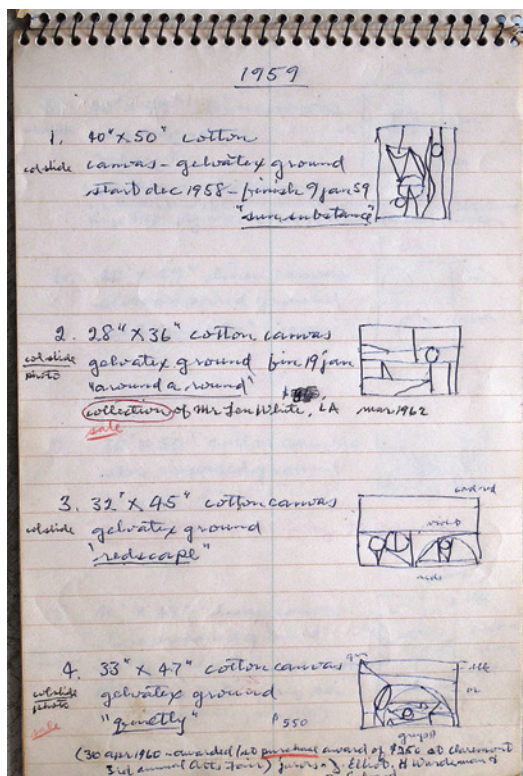 1959
1. 40" x 50" cotton
colslide canvas - gelvatex ground
start dec 1958 - finish 9 jan 59
"sunsubstance"
2. 28" x 36" cotton canvas
colslide gelvatex ground fin 19 jan
photo "around a round"
collection of Mr Len White, LA mar 1962
sale
3. 32" x 45" cotton canvas
colslide gelvatex ground
"redscape"
cad red
reds
4. 33" x 47" cotton canvas
colslide gelvatex ground
photo "quietly" $550
sale
greys
(30 apr 1960 - awarded 1st purchase award of $250 at claremont
3rd annual Arts Fair) jurors - J. Elliot, H Wardeman &